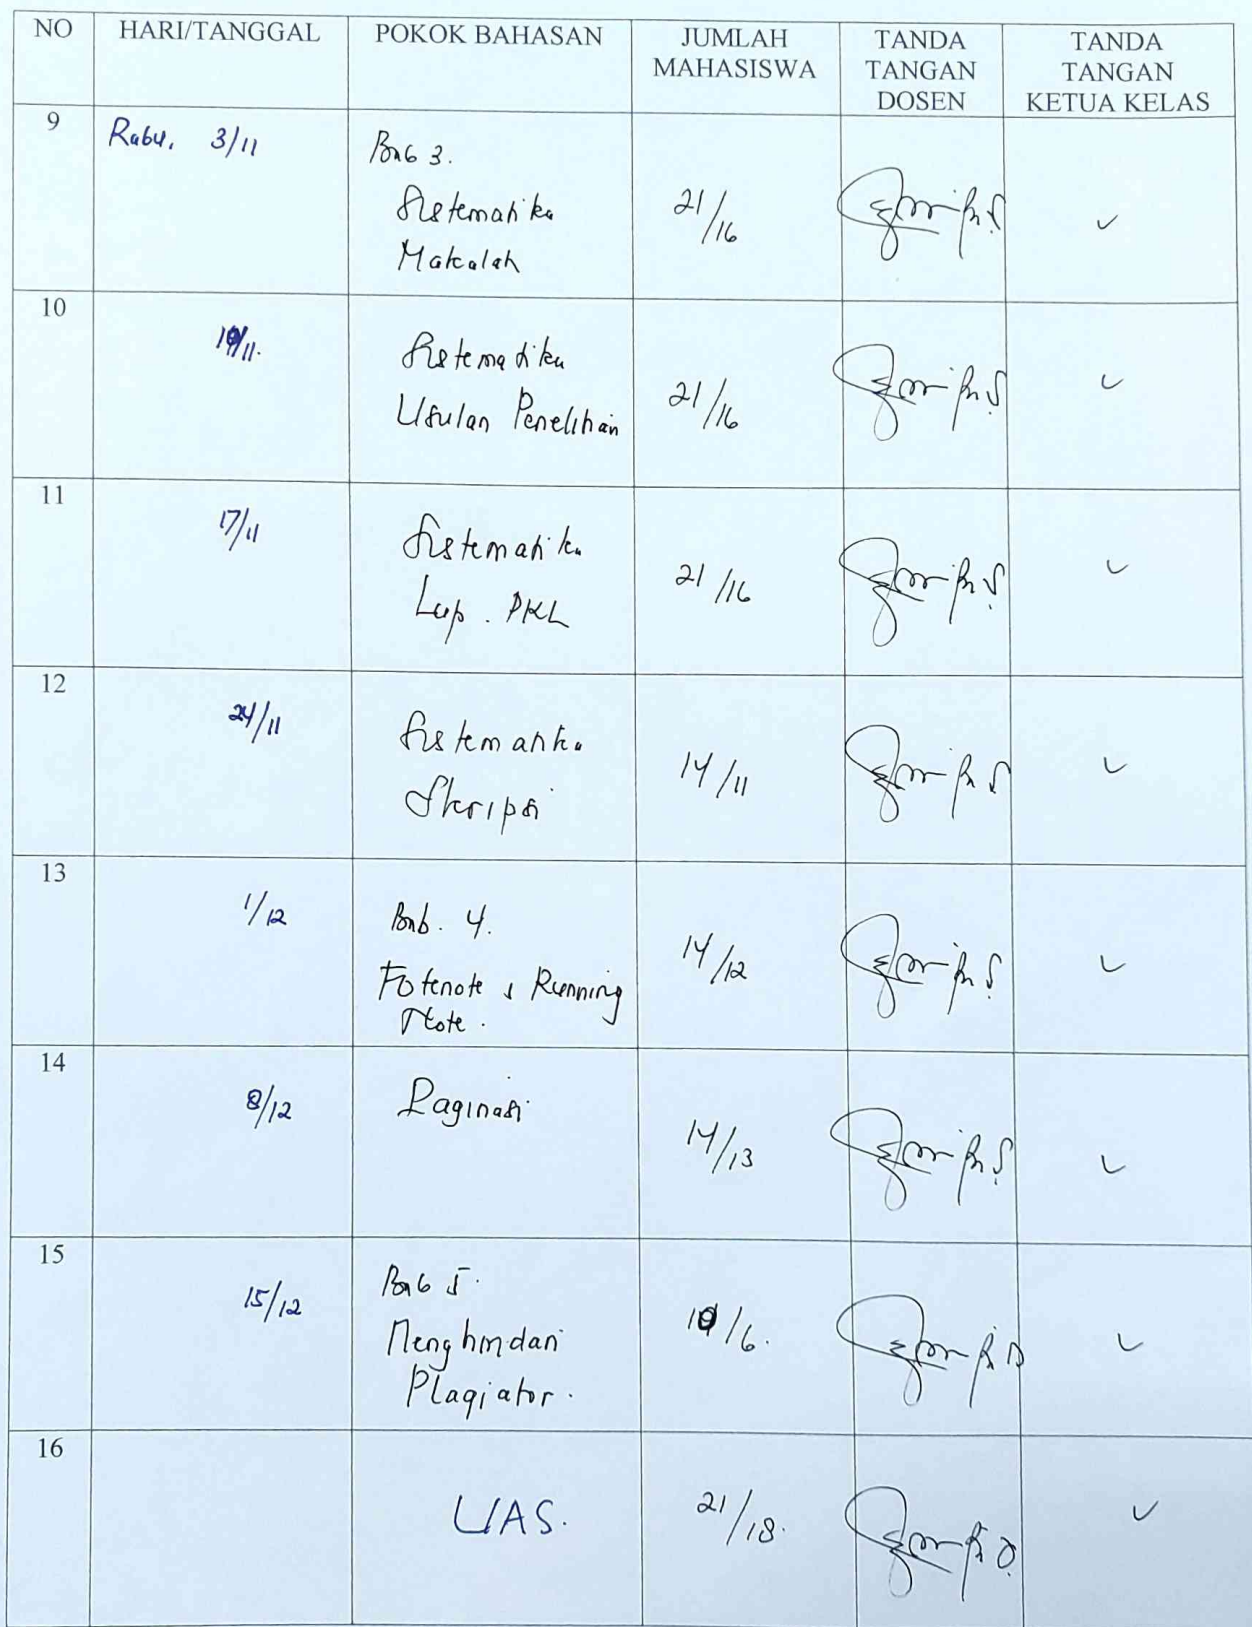 NO HARI/TANGGAL POKOK BAHASAN JUMLAH MAHASISWA TANDA TANGAN DOSEN TANDA TANGAN KETUA KELAS
9 Rabu, 3/11 Bab 3.
Sistematika
Makalah
21/16
10
Sistematika
Usulan Penelitian
21/16
11 17/11
Sistematika
Lap. PKL
21/16
12 24/11
Sistematika
Skripsi
14/11
13 1/12 Bab. 4.
Fotenote & Running
Note.
14/12
14 8/12 Paginasi
14/13
15 15/12 Bab 5.
Menghindari
Plagiator.
16
UAS.
21/18.